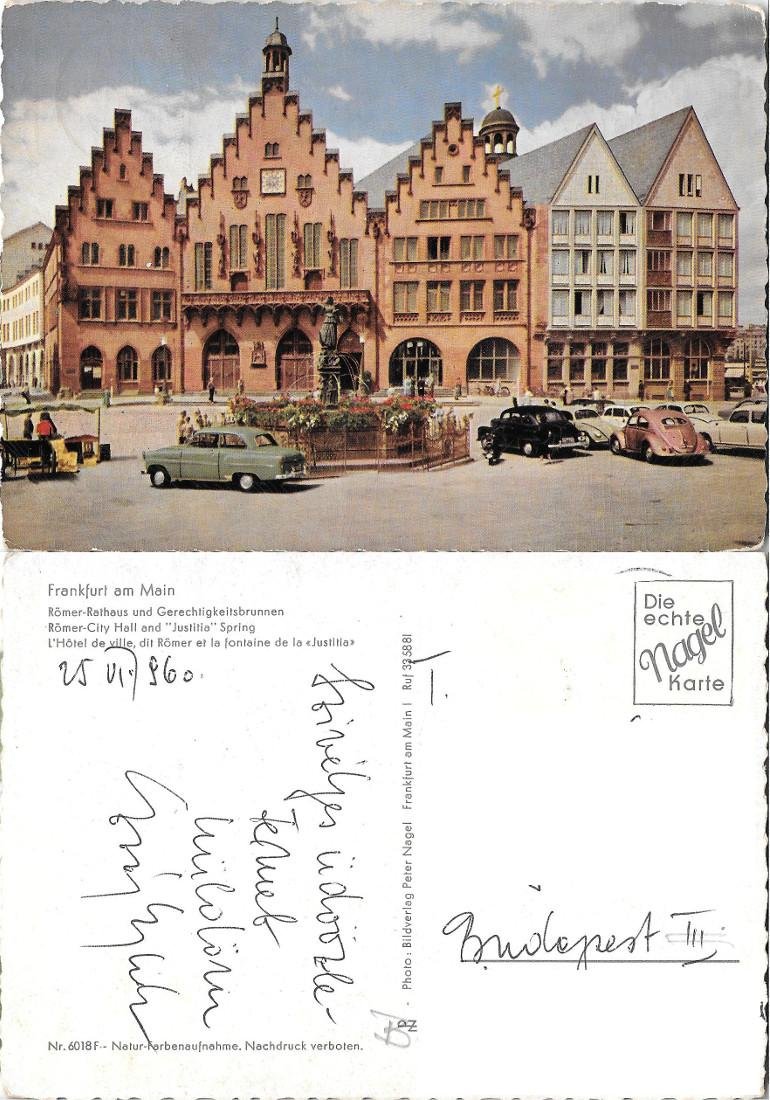 Frankfurt am Main
Römer-Rathaus und Gerechtigkeitsbrunnen
Römer-City Hall and "Justitia" Spring
L'Hôtel de ville, dit Römer et la fontaine de la «Justitia»
25 VI. 960.
Szivélyes üdvözle-
temet
küldöm
Die
echte
Nagel
Karte
Photo: Bildverlag Peter Nagel Frankfurt am Main I Ruf 335881
I.
Budapest III
Nr. 6018F - Natur-Farbenaufnahme. Nachdruck verboten.